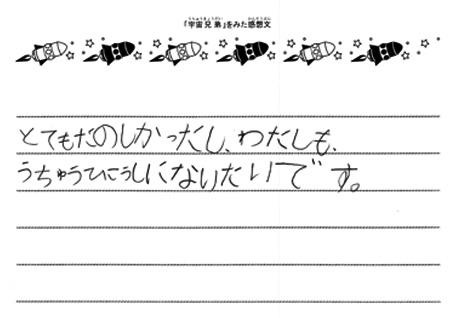 「宇宙兄弟」をみた感想文
とてもたのしかったし、わたしも、
うちゅうひこうしになりたいです。